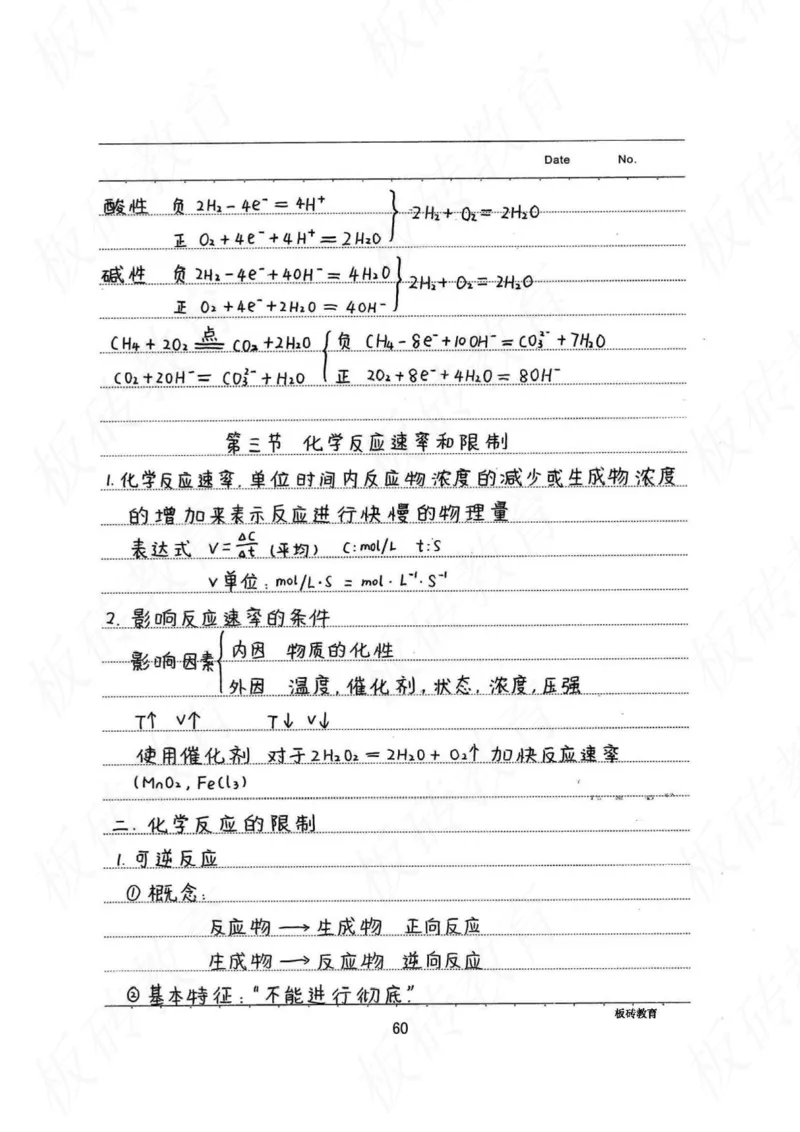 Date No.
酸性 负 2H₂-4e⁻=4H⁺
2H₂+O₂=2H₂O
正 O₂+4e⁻+4H⁺=2H₂O
碱性 负 2H₂-4e⁻+4OH⁻=4H₂O
2H₂+O₂=2H₂O
正 O₂+4e⁻+2H₂O=4OH⁻
CH₄+2O₂ 点 CO₂+2H₂O 负 CH₄-8e⁻+10OH⁻=CO₃²⁻+7H₂O
CO₂+2OH⁻=CO₃²⁻+H₂O 正 2O₂+8e⁻+4H₂O=8OH⁻
第三节 化学反应速率和限制
1.化学反应速率.单位时间内反应物浓度的减少或生成物浓度
的增加来表示反应进行快慢的物理量
表达式 V=ΔC/Δt (平均) C:mol/L t:S
V单位:mol/L·S = mol·L⁻¹·S⁻¹
2. 影响反应速率的条件
影响因素 内因 物质的化性
外因 温度,催化剂,状态,浓度,压强
T↑ V↑ T↓ V↓
使用催化剂 对于2H₂O₂=2H₂O+O₂↑ 加快反应速率
(MnO₂, FeCl₃)
二.化学反应的限制
1.可逆反应
①概念:
反应物→生成物 正向反应
生成物→反应物 逆向反应
②基本特征:"不能进行彻底"
板砖教育
60